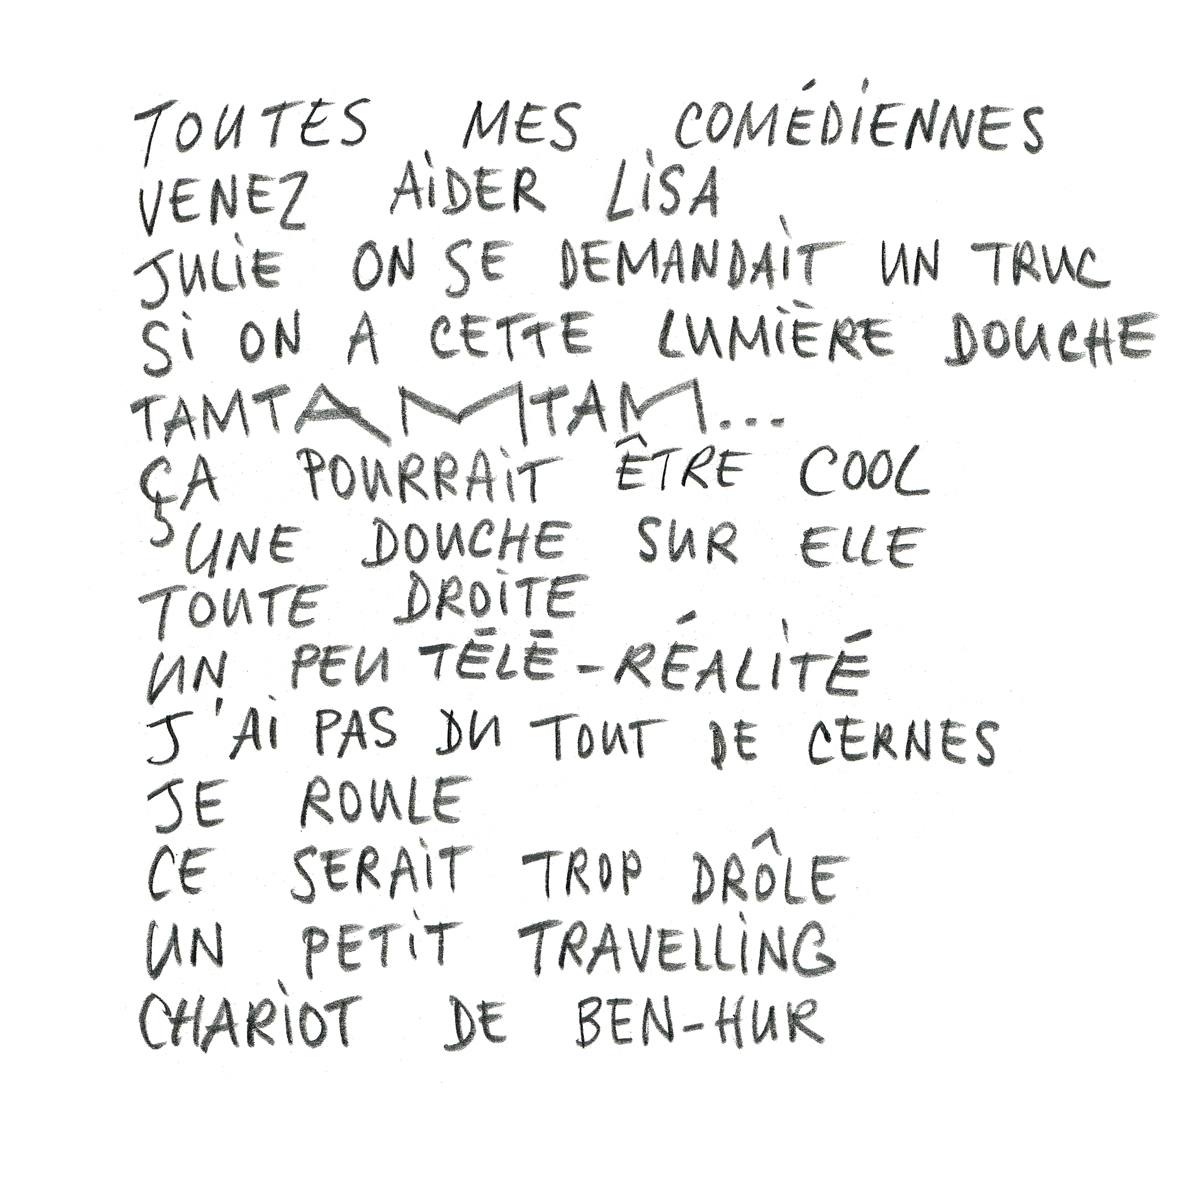 TOUTES MES COMÉDiENNES
VENEZ AiDER LiSA
JULiE ON SE DEMANDAiT UN TRUC
Si ON A CETTE LUMiÈRE DOUCHE
TAMTAMTAM...
ÇA POURRAiT ÊTRE COOL
UNE DOUCHE SUR ELLE
TOUTE DROiTE
UN PEU TÉLÉ-RÉALiTÉ
J'Ai PAS DU TOUT DE CERNES
JE ROULE
CE SERAiT TROP DRÔLE
UN PETiT TRAVELLiNG
CHARiOT DE BEN-HUR